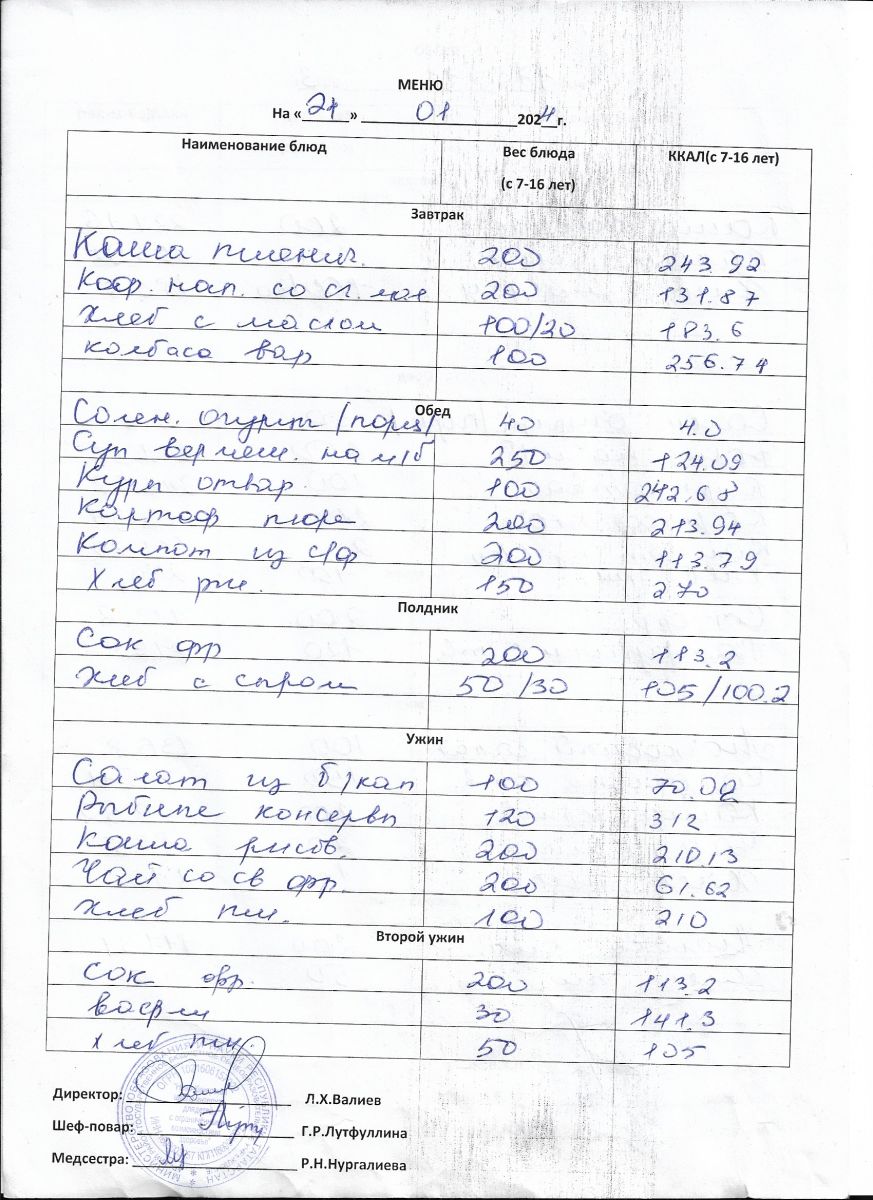 МЕНЮ
На «24» 01 2024 г.
Наименование блюд Вес блюда (с 7-16 лет) ККАЛ(с 7-16 лет)
Завтрак
Каша пшенич. 200 243.92
Коф. нап. со сг. мол 200 131.87
Хлеб с маслом 100/20 183.6
колбаса вар 100 256.74
Обед
Солен. огурцы (порц) 40 4.0
Суп вермеш. на м/б 250 124.09
Куры отвар. 100 242.68
Картоф пюре 200 213.94
Компот из с/ф 200 113.79
Хлеб рж. 150 270
Полдник
Сок фр 200 113.2
Хлеб с сыром 50/30 105/100.2
Ужин
Салат из б/кап 100 70.02
Рыбные консервы 120 312
Каша рисов. 200 210.13
Чай со св фр. 200 61.62
Хлеб пш. 100 210
Второй ужин
Сок фр. 200 113.2
вафли 30 141.3
Хлеб пш. 50 105
Директор: Л.Х.Валиев
Шеф-повар: Г.Р.Лутфуллина
Медсестра: Р.Н.Нургалиева